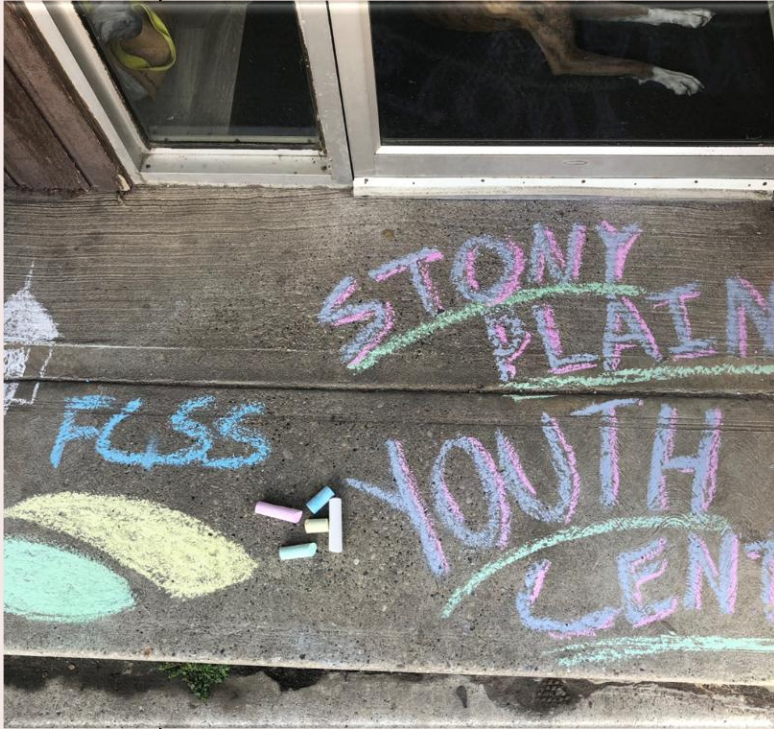 STONY
PLAIN
FCSS
YOUTH
CENT